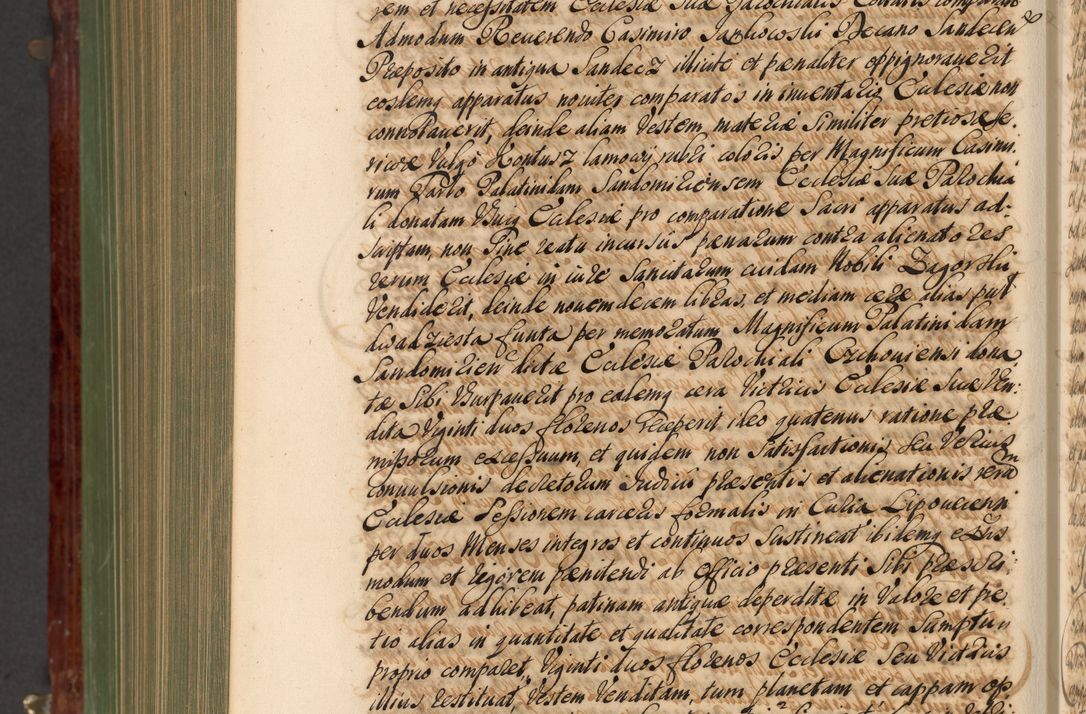 rem et necessitatem Ecclesiæ suæ Parochialis
Admodum Reverendo Casimiro Decano Sandecen
Præposito in antiqua Sandecz illicite et pœnaliter oppignoraverit
eosdemq apparatus noviter comparatos in inventario Ecclesiæ non
connotaverit, deinde aliam Vestem materiæ similiter pretiosæ se.
ricæ Vulgo Kontusz lamowÿ rubri coloris per Magnificum Casimi
rum Tarło Palatinidam Sandomiriensem Ecclesiæ suæ Parochia
li donatam Ecclesiæ pro comparatione Sacri apparatus ad:
scriptam, non sine reatu incursus pœnarum contra alienatores
rerum Ecclesiæ in iure Sancitarum cuidam Nobili Zagorski
Vendiderit, deinde novemdecem libras, et mediam ceræ alias puł
dwadziesta funta per memoratum Magnificum Palatinidam
Sandomirien dictæ Ecclesiæ Parochiali Czchoviensi dona
tæ Sibi Usurpaverit pro eademq cera Victricis Ecclesiæ suæ Ven-
dita Viginti duos florenos receperit ideo quatenus ratione præ
missorum excessuum, et quidem non satisfactionis seu Verius
convulsionis decretorum Iudicii præsentis et alienationis rerum
Ecclesiæ Sessionem carceris formalis in Curia Lipovecensi
per duos Menses integros et continuos Sustineat ibidemq
modum et rigorem pœnitendi ab Officio præsenti Sibi præscri:
bendum adhibeat, patinam antiquæ deperditæ in Valore et pre
tio alias in quantitate et qualitate correspondentem Sumptu
proprio comparet, Viginti duos florenos Ecclesiæ Seu Victricis
illius restituat, Vestem Venditam, tum planetam et cappam op